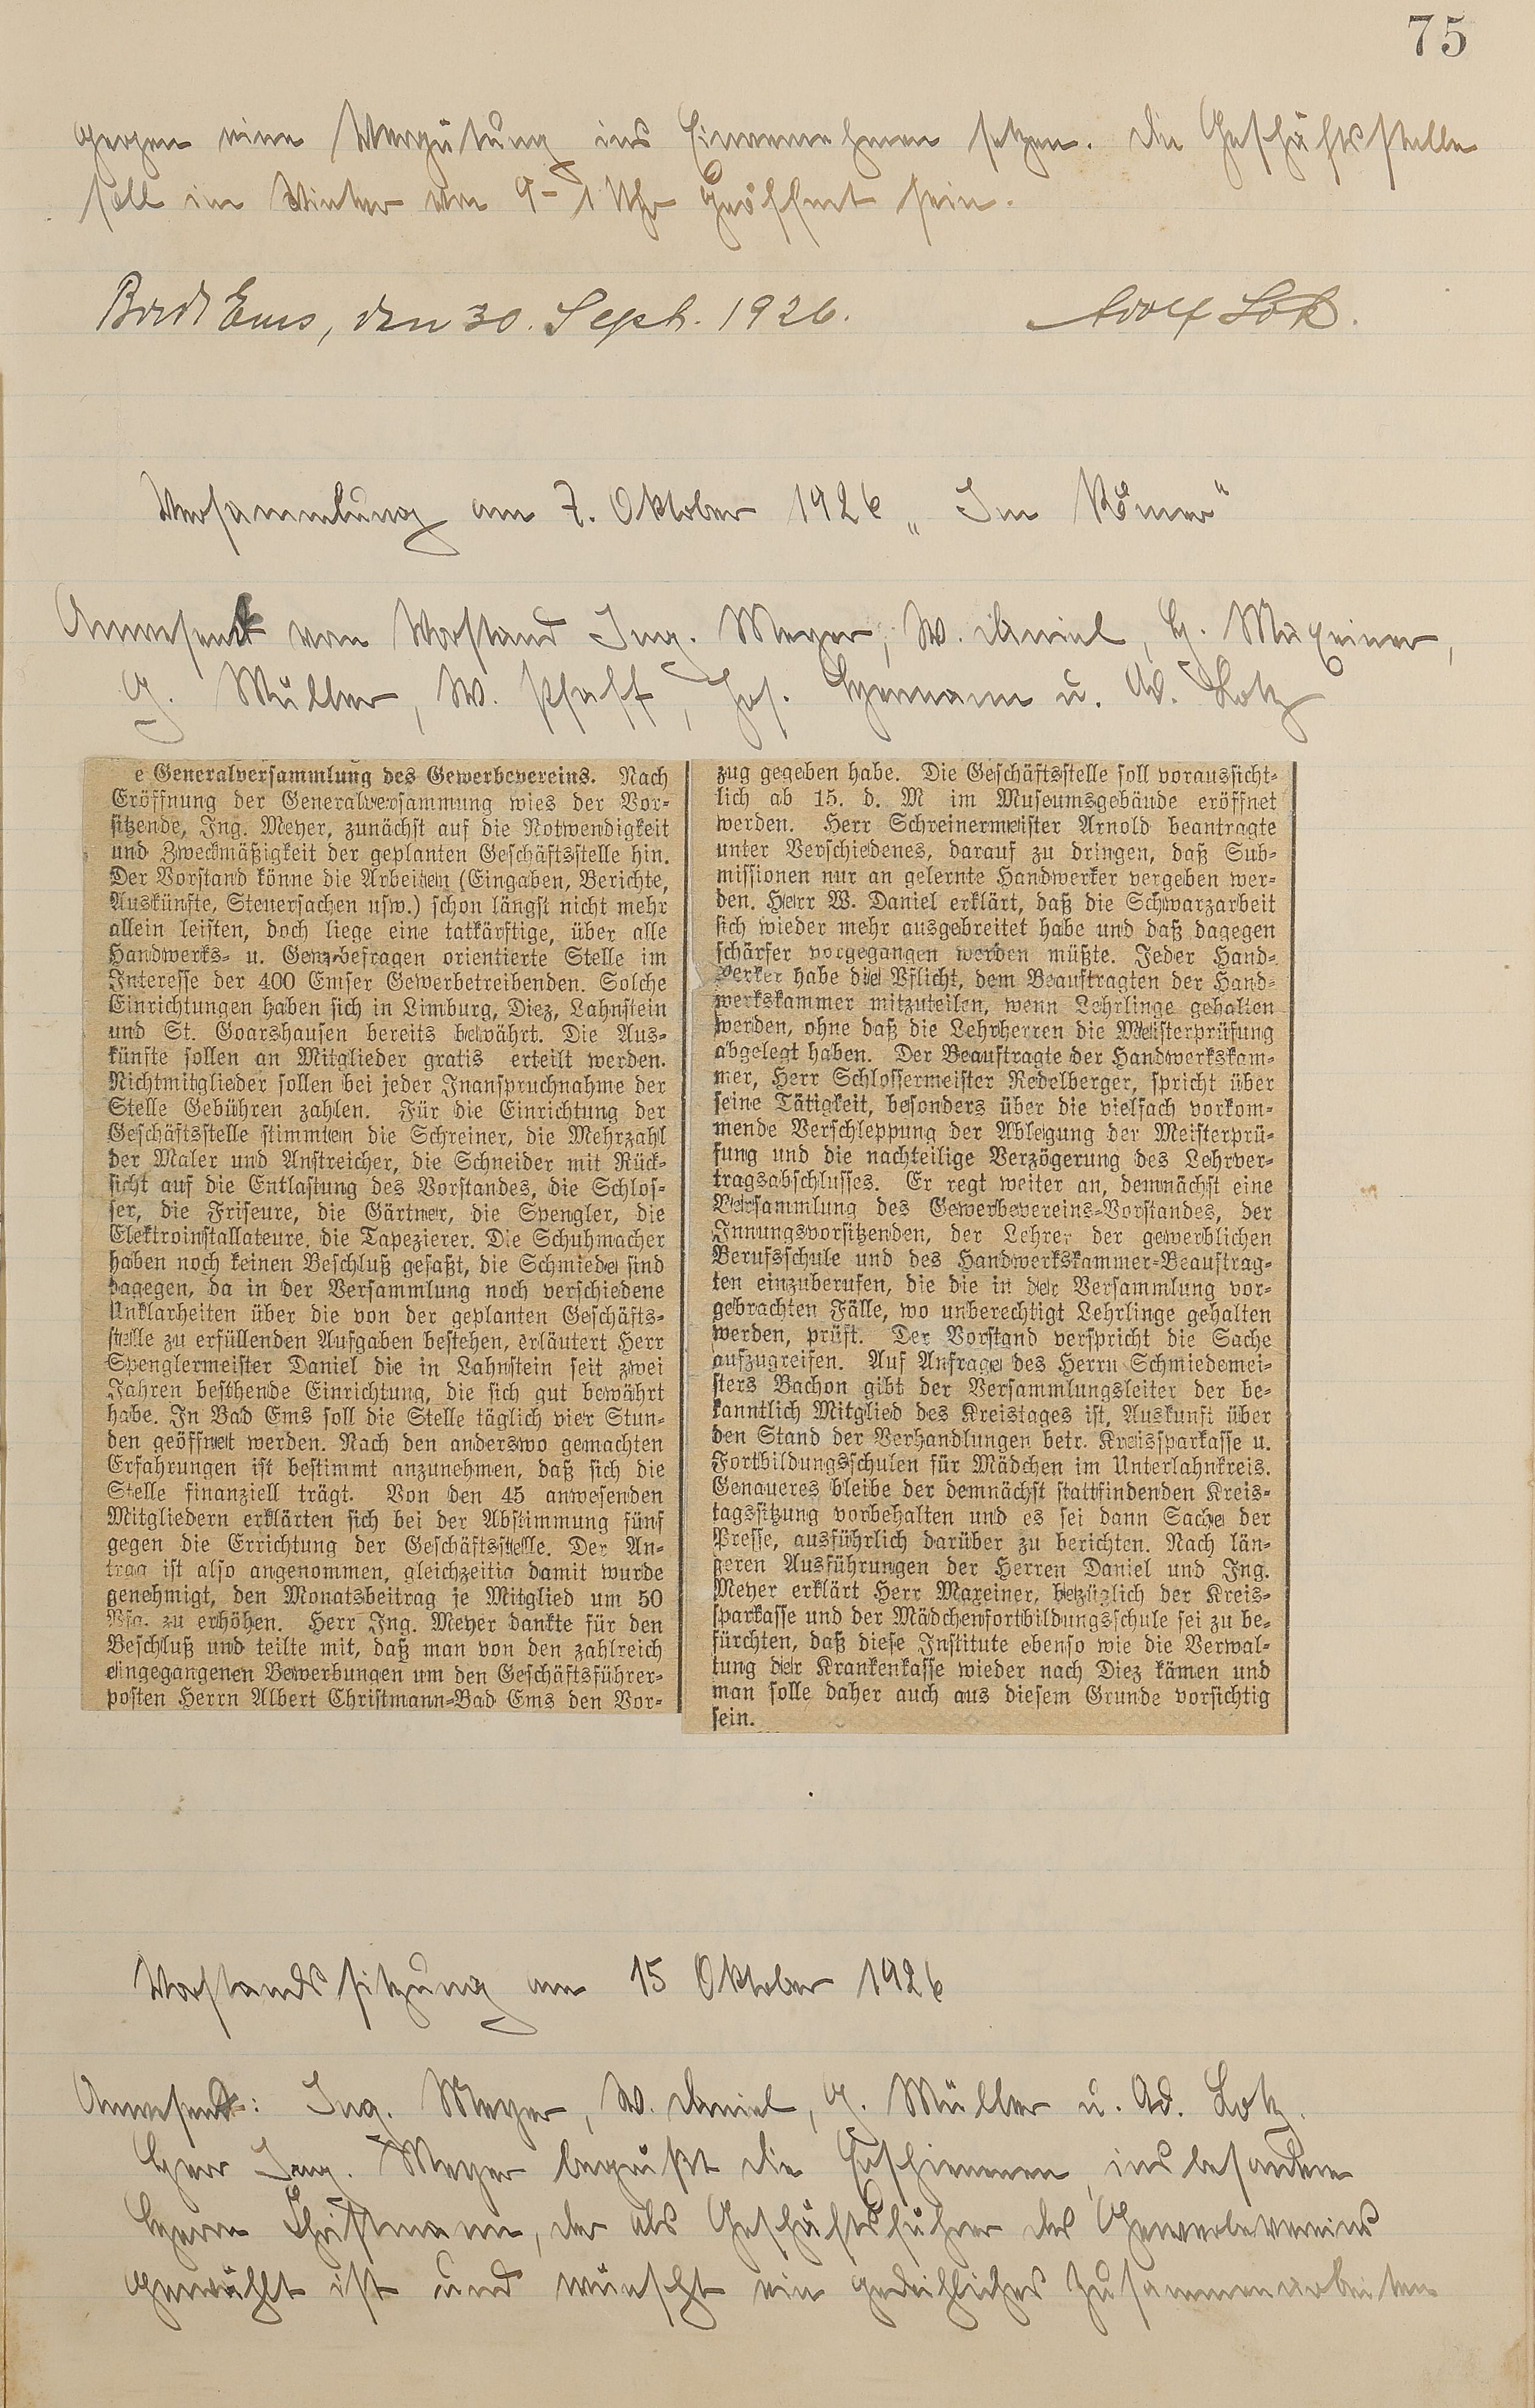 75
gegen eine Vergütung ins Einvernehmen setzen. Die Geschäftsstelle
soll im Winter von 9–1 Uhr geöffnet sein.
Bad Ems, den 30. Sept. 1926. Adolf Lotz.
Versammlung am 7. Oktober 1926 „Im Römer“
Anwesend vom Vorstand Ing. Meyer, W. Daniel, H. Maxeiner,
G. Müller, W. Pfaff, Jos. Hermann u. Ad. Lotz
e Generalversammlung des Gewerbevereins. Nach
Eröffnung der Generalversammung wies der Vor-
sitzende, Ing. Meyer, zunächst auf die Notwendigkeit
und Zweckmäßigkeit der geplanten Geschäftsstelle hin.
Der Vorstand könne die Arbeiten (Eingaben, Berichte,
Auskünfte, Steuersachen usw.) schon längst nicht mehr
allein leisten, doch liege eine tatkärftige, über alle
Handwerks- u. Gewerbefragen orientierte Stelle im
Interesse der 400 Emser Gewerbetreibenden. Solche
Einrichtungen haben sich in Limburg, Diez, Lahnstein
und St. Goarshausen bereits bewährt. Die Aus-
künfte sollen an Mitglieder gratis erteilt werden.
Nichtmitglieder sollen bei jeder Inanspruchnahme der
Stelle Gebühren zahlen. Für die Einrichtung der
Geschäftsstelle stimmten die Schreiner, die Mehrzahl
der Maler und Anstreicher, die Schneider mit Rück-
sicht auf die Entlastung des Vorstandes, die Schlos-
ser, die Friseure, die Gärtner, die Spengler, die
Elektroinstallateure, die Tapezierer. Die Schuhmacher
haben noch keinen Beschluß gefaßt, die Schmiede sind
dagegen, da in der Versammlung noch verschiedene
Unklarheiten über die von der geplanten Geschäfts-
stelle zu erfüllenden Aufgaben bestehen, erläutert Herr
Spenglermeister Daniel die in Lahnstein seit zwei
Jahren besthende Einrichtung, die sich gut bewährt
habe. In Bad Ems soll die Stelle täglich vier Stun-
den geöffnet werden. Nach den anderswo gemachten
Erfahrungen ist bestimmt anzunehmen, daß sich die
Stelle finanziell trägt. Von den 45 anwesenden
Mitgliedern erklärten sich bei der Abstimmung fünf
gegen die Errichtung der Geschäftsstelle. Der An-
trag ist also angenommen, gleichzeitig damit wurde
genehmigt, den Monatsbeitrag je Mitglied um 50
Pfg. zu erhöhen. Herr Ing. Meyer dankte für den
Beschluß und teilte mit, daß man von den zahlreich
eingegangenen Bewerbungen um den Geschäftsführer-
posten Herrn Albert Christmann-Bad Ems den Vor-
zug gegeben habe. Die Geschäftsstelle soll voraussicht-
lich ab 15. d. M im Museumsgebäude eröffnet
werden. Herr Schreinermeister Arnold beantragte
unter Verschiedenes, darauf zu dringen, daß Sub-
missionen nur an gelernte Handwerker vergeben wer-
den. Herr W. Daniel erklärt, daß die Schwarzarbeit
sich wieder mehr ausgebreitet habe und daß dagegen
schärfer vorgegangen werden müßte. Jeder Hand-
werker habe die Pflicht, dem Beauftragten der Hand-
werkskammer mitzuteilen, wenn Lehrlinge gehalten
werden, ohne daß die Lehrherren die Meisterprüfung
abgelegt haben. Der Beauftragte der Handwerkskam-
mer, Herr Schlossermeister Redelberger, spricht über
seine Tätigkeit, besonders über die vielfach vorkom-
mende Verschleppung der Ablegung der Meisterprü-
fung und die nachteilige Verzögerung des Lehrver-
tragsabschlusses. Er regt weiter an, demnächst eine
Versammlung des Gewerbevereins-Vorstandes, der
Innungsvorsitzenden, der Lehrer der gewerblichen
Berufsschule und des Handwerkskammer-Beauftrag-
ten einzuberufen, die die in der Versammlung vor-
gebrachten Fälle, wo unberechtigt Lehrlinge gehalten
werden, prüft. Der Vorstand verspricht die Sache
aufzugreifen. Auf Anfrage des Herrn Schmiedemei-
sters Bachon gibt der Versammlungsleiter der be-
kanntlich Mitglied des Kreistages ist, Auskunft über
den Stand der Verhandlungen betr. Kreissparkasse u.
Fortbildungsschulen für Mädchen im Unterlahnkreis.
Genaueres bleibe der demnächst stattfindenden Kreis-
tagssitzung vorbehalten und es sei dann Sache der
Presse, ausführlich darüber zu berichten. Nach län-
geren Ausführungen der Herren Daniel und Ing.
Meyer erklärt Herr Maxeiner, bezüglich der Kreis-
sparkasse und der Mädchenfortbildungsschule sei zu be-
fürchten, daß diese Institute ebenso wie die Verwal-
tung der Krankenkasse wieder nach Diez kämen und
man solle daher auch aus diesem Grunde vorsichtig
sein.
Vorstandssitzung am 15 Oktober 1926
Anwesend: Ing. Meyer, W. Daniel, G. Müller u. Ad. Lotz.
Herr Ing. Meyer begrüßt die Erschienenen, insbesondere
Herrn Christmann, der als Geschäftsführer des Gewerbevereins
gewählt ist und wünscht ein gedeihliches Zusammenarbeiten